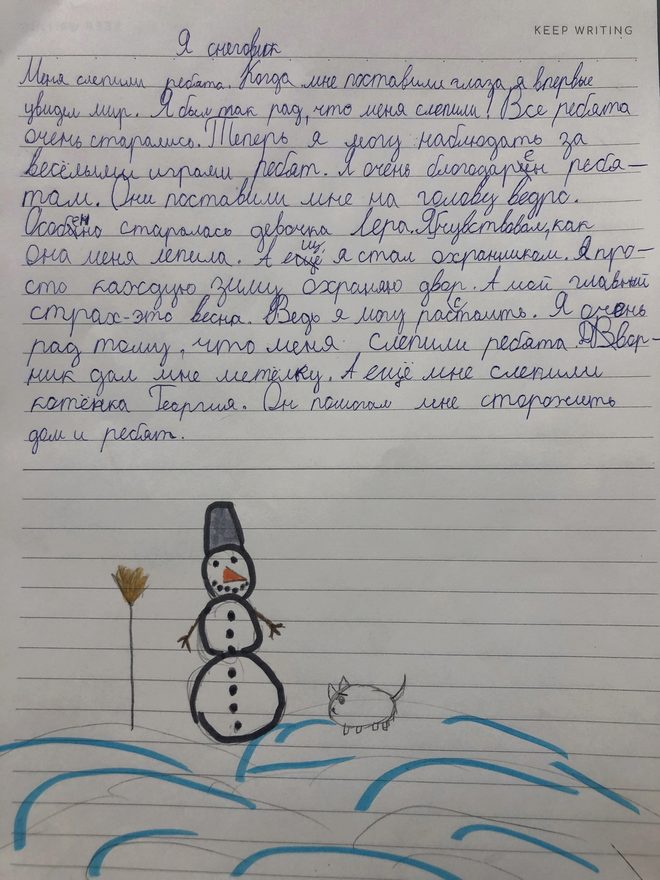 KEEP WRITING
Я снеговик
Меня слепили ребята. Когда мне поставили глаза я впервые
увидел мир. Я был так рад, что меня слепили! Все ребята
очень старались. Теперь я могу наблюдать за
весёлыми играми ребят. Я очень благодарен ребя-
там. Они поставили мне на голову ведро.
Особенно старалась девочка Вера. Я чувствовал, как
она меня лепила. А ещё я стал охранником. Я про-
сто каждую зиму охраняю двор. А мой главный
страх-это весна. Ведь я могу растаить. Я очень
рад тому, что меня слепили ребята. Двор-
ник дал мне метёлку. А ещё мне слепили
котёнка Георгия. Он помогал мне сторожить
дом и ребят.